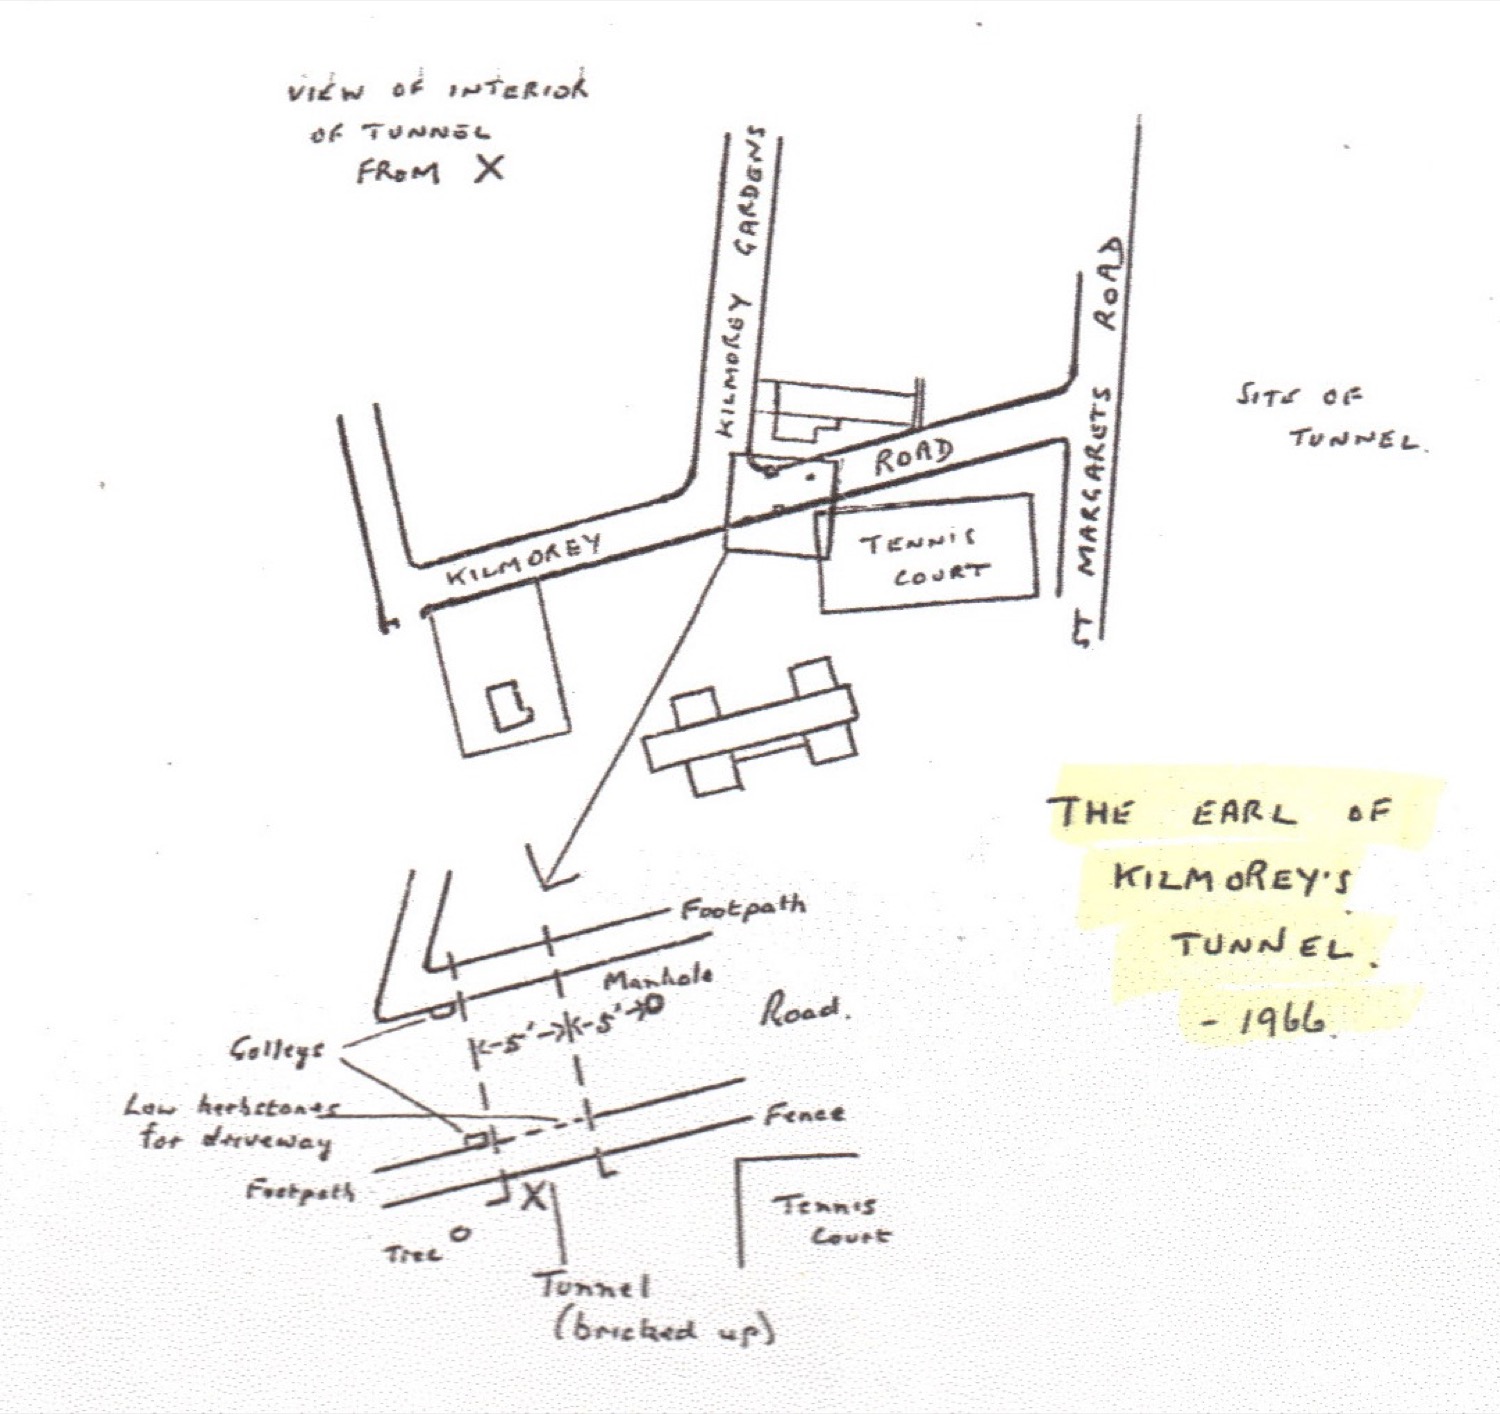 VIEW OF INTERIOR
OF TUNNEL
FROM X
KILMOREY GARDENS
ST MARGARETS ROAD
SITE OF
TUNNEL.
KILMOREY ROAD
TENNIS
COURT
THE EARL OF
KILMOREY'S
TUNNEL.
- 1966.
Footpath
Manhole
Road.
5' 5'
Golleys
Low kerbstones
for driveway
Fence
Footpath
X
Tree
Tennis
Court
Tunnel
(bricked up)